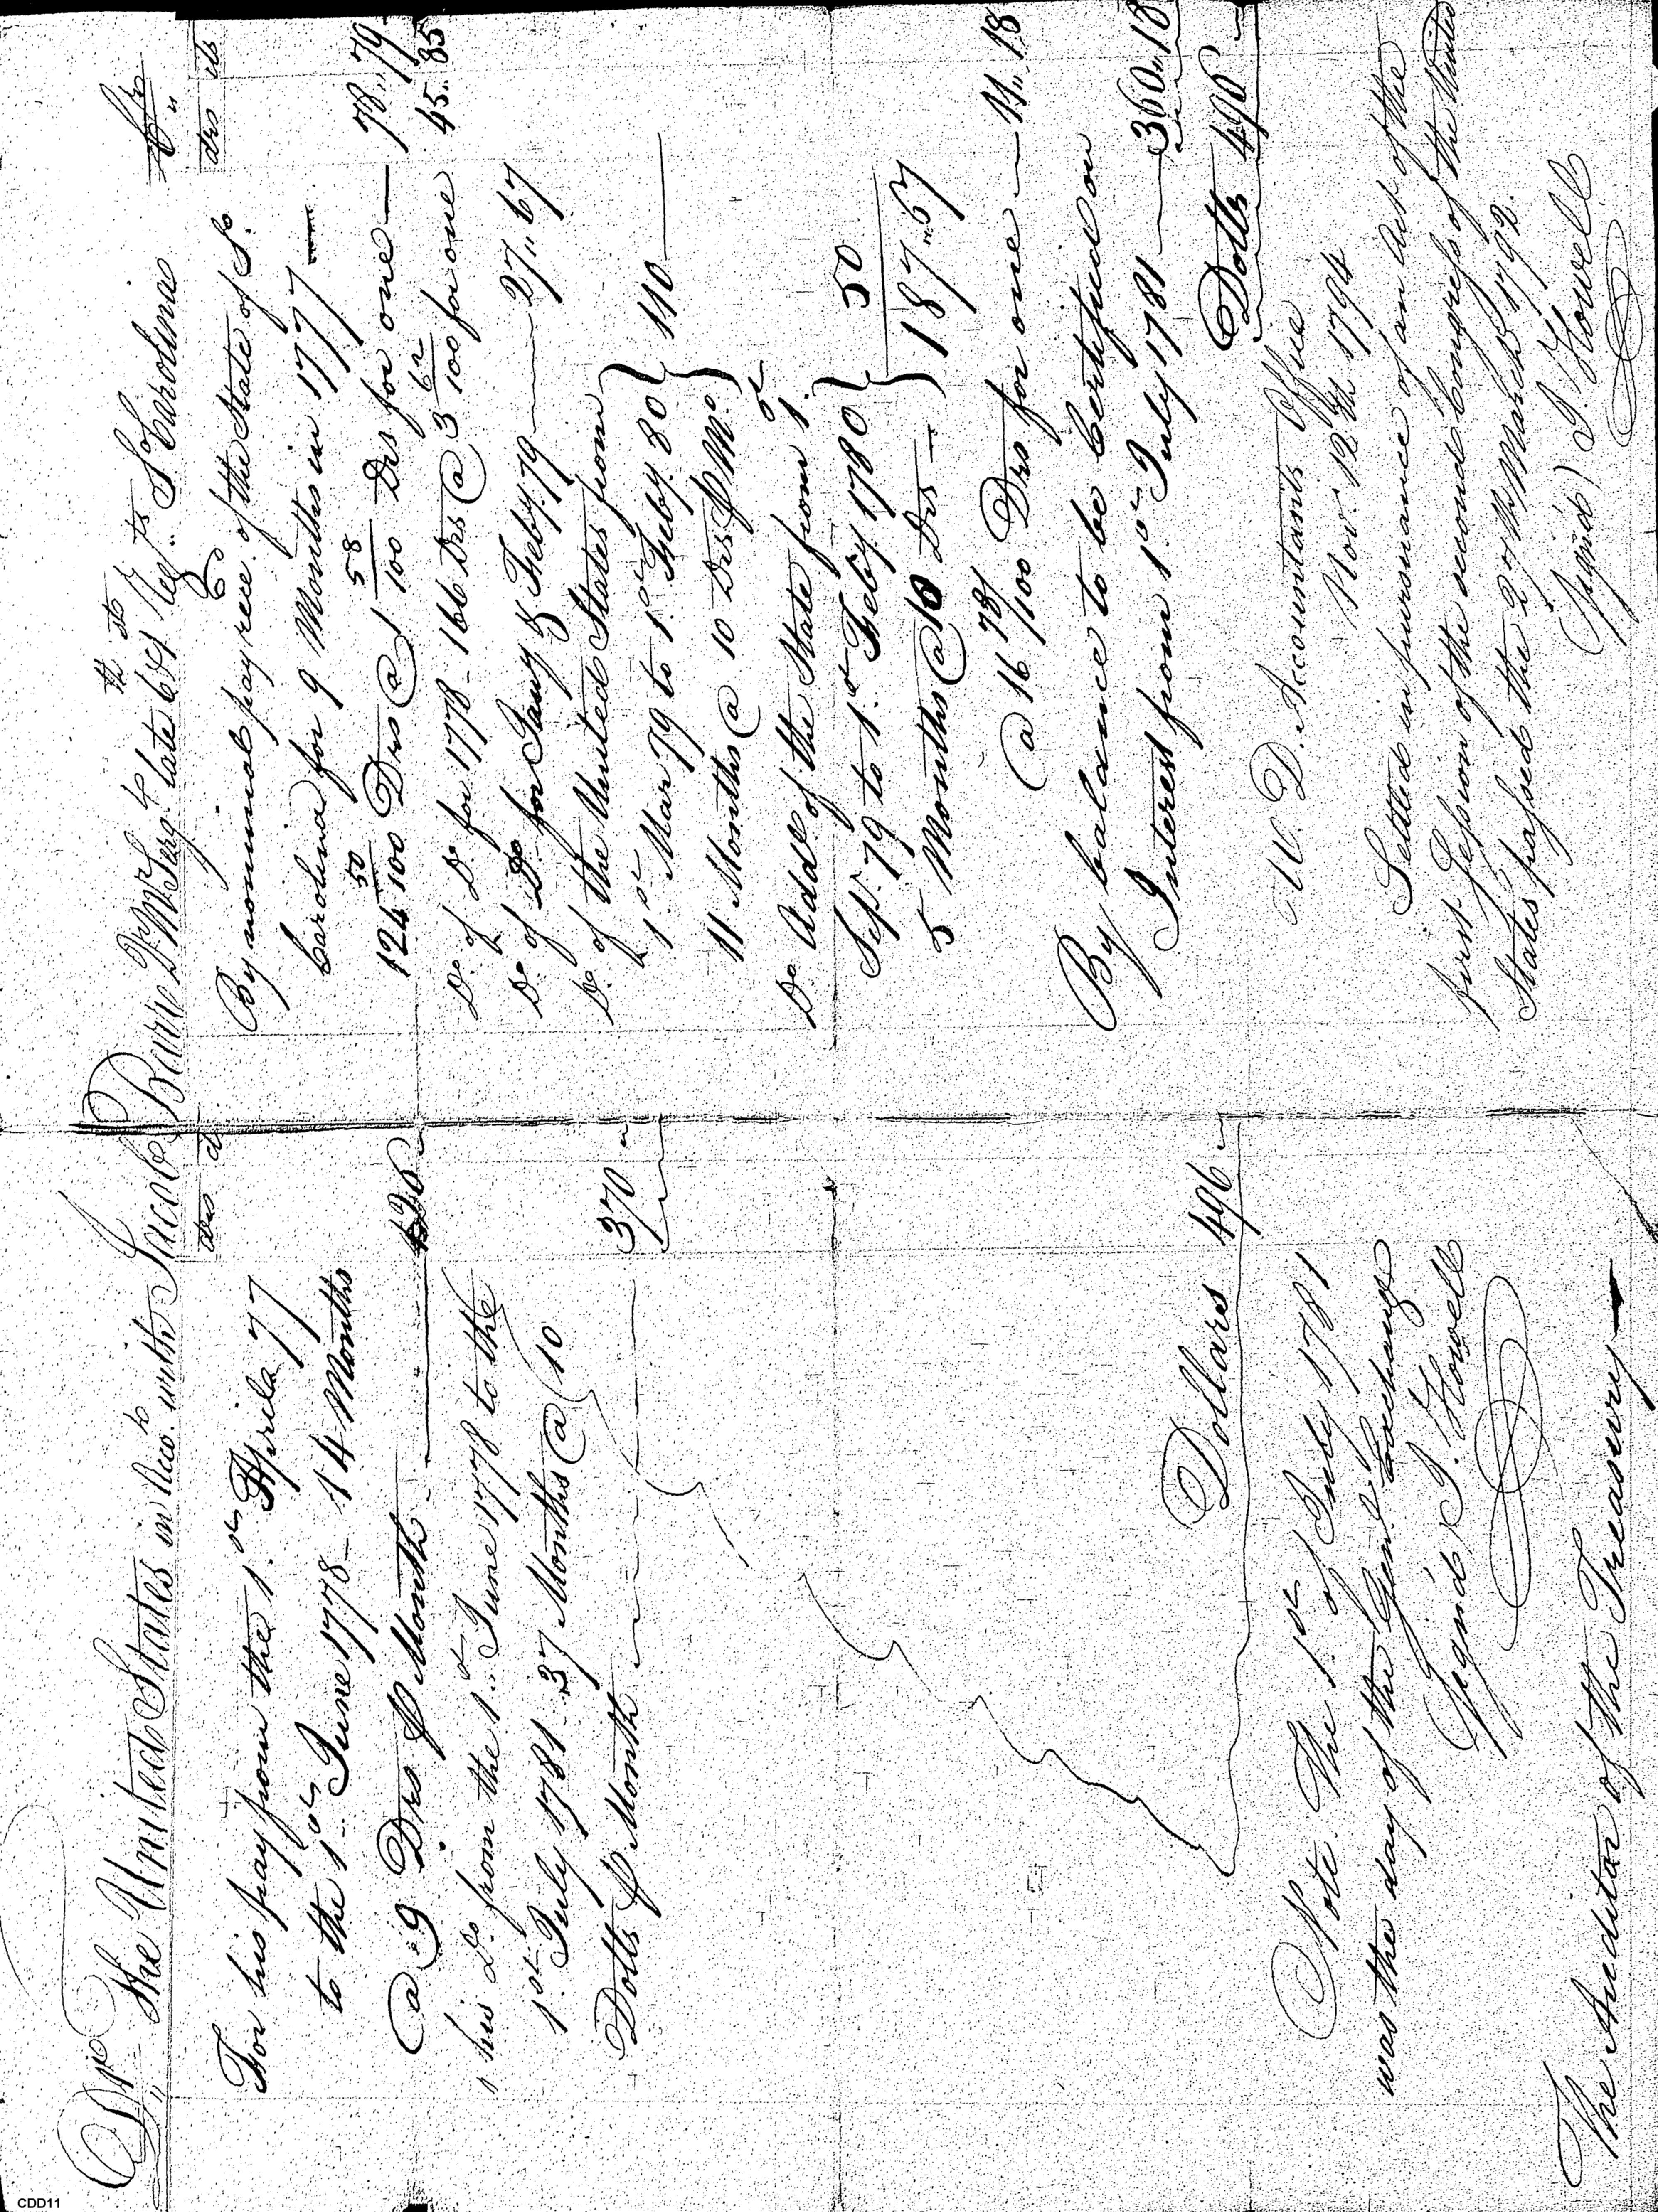 Dr The United States in Acco.t with Jacob Barne Q.r M.r Serg.t late 6th Reg.t S.o Carolina Cr
drs cts
For his pay from the 1.st Aprila 77
to the 1.st June 1778 - 14 Months
@ 9 Drs P Month 126
his D.o from the 1.st June 1778 to the
1.st July 1781 - 37 Months @ 10
Dolls P Month 370
Dollars 496
Note The 1.st of July 1781
was the day of the Gen.l Exchange
Signed J. Howell
The Auditor of the Treasury
drs cts
By nominal pay rec.d of the State of S.o
Carolina for 9 Months in 1777
124 50/100 Drs @ 1 58/100 Drs for one 78.. 79
D.o of D.o for 1778 - 166 Drs @ 3 62/100 for one 45.. 85
D.o of D.o for Jany & Feby. 79 27.. 67
D.o of the United States from
1.st Mar 79 to 1.st Feby. 80 } 110
11 Months @ 10 Drs P M.o
D.o Addl. of the State from 1.st
Sept. 79 to 1.st Feby. 1780 } 50
5 Months @ 10 Drs 187.. 67
@ 16 78/100 Drs for one 11.. 18
By balance to be Certified on
Interest from 1.st July 1781 360.. 18
Dolls 496
W. D. Accountants Office
Nov.r 12th 1794
Settled in pursuance of an Act of the
first Session of the second Congress of the United
States passed the 27th March 1792.
(Signed) J. Howell
CDD11